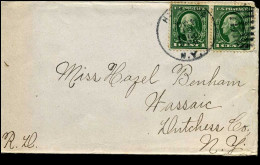 U.S. POSTAGE U.S. POSTAGE
1 CENT 1 CENT
N.Y.
Miss Hazel Benham
Wassaic
Dutchess Co.
R.D. N.Y.